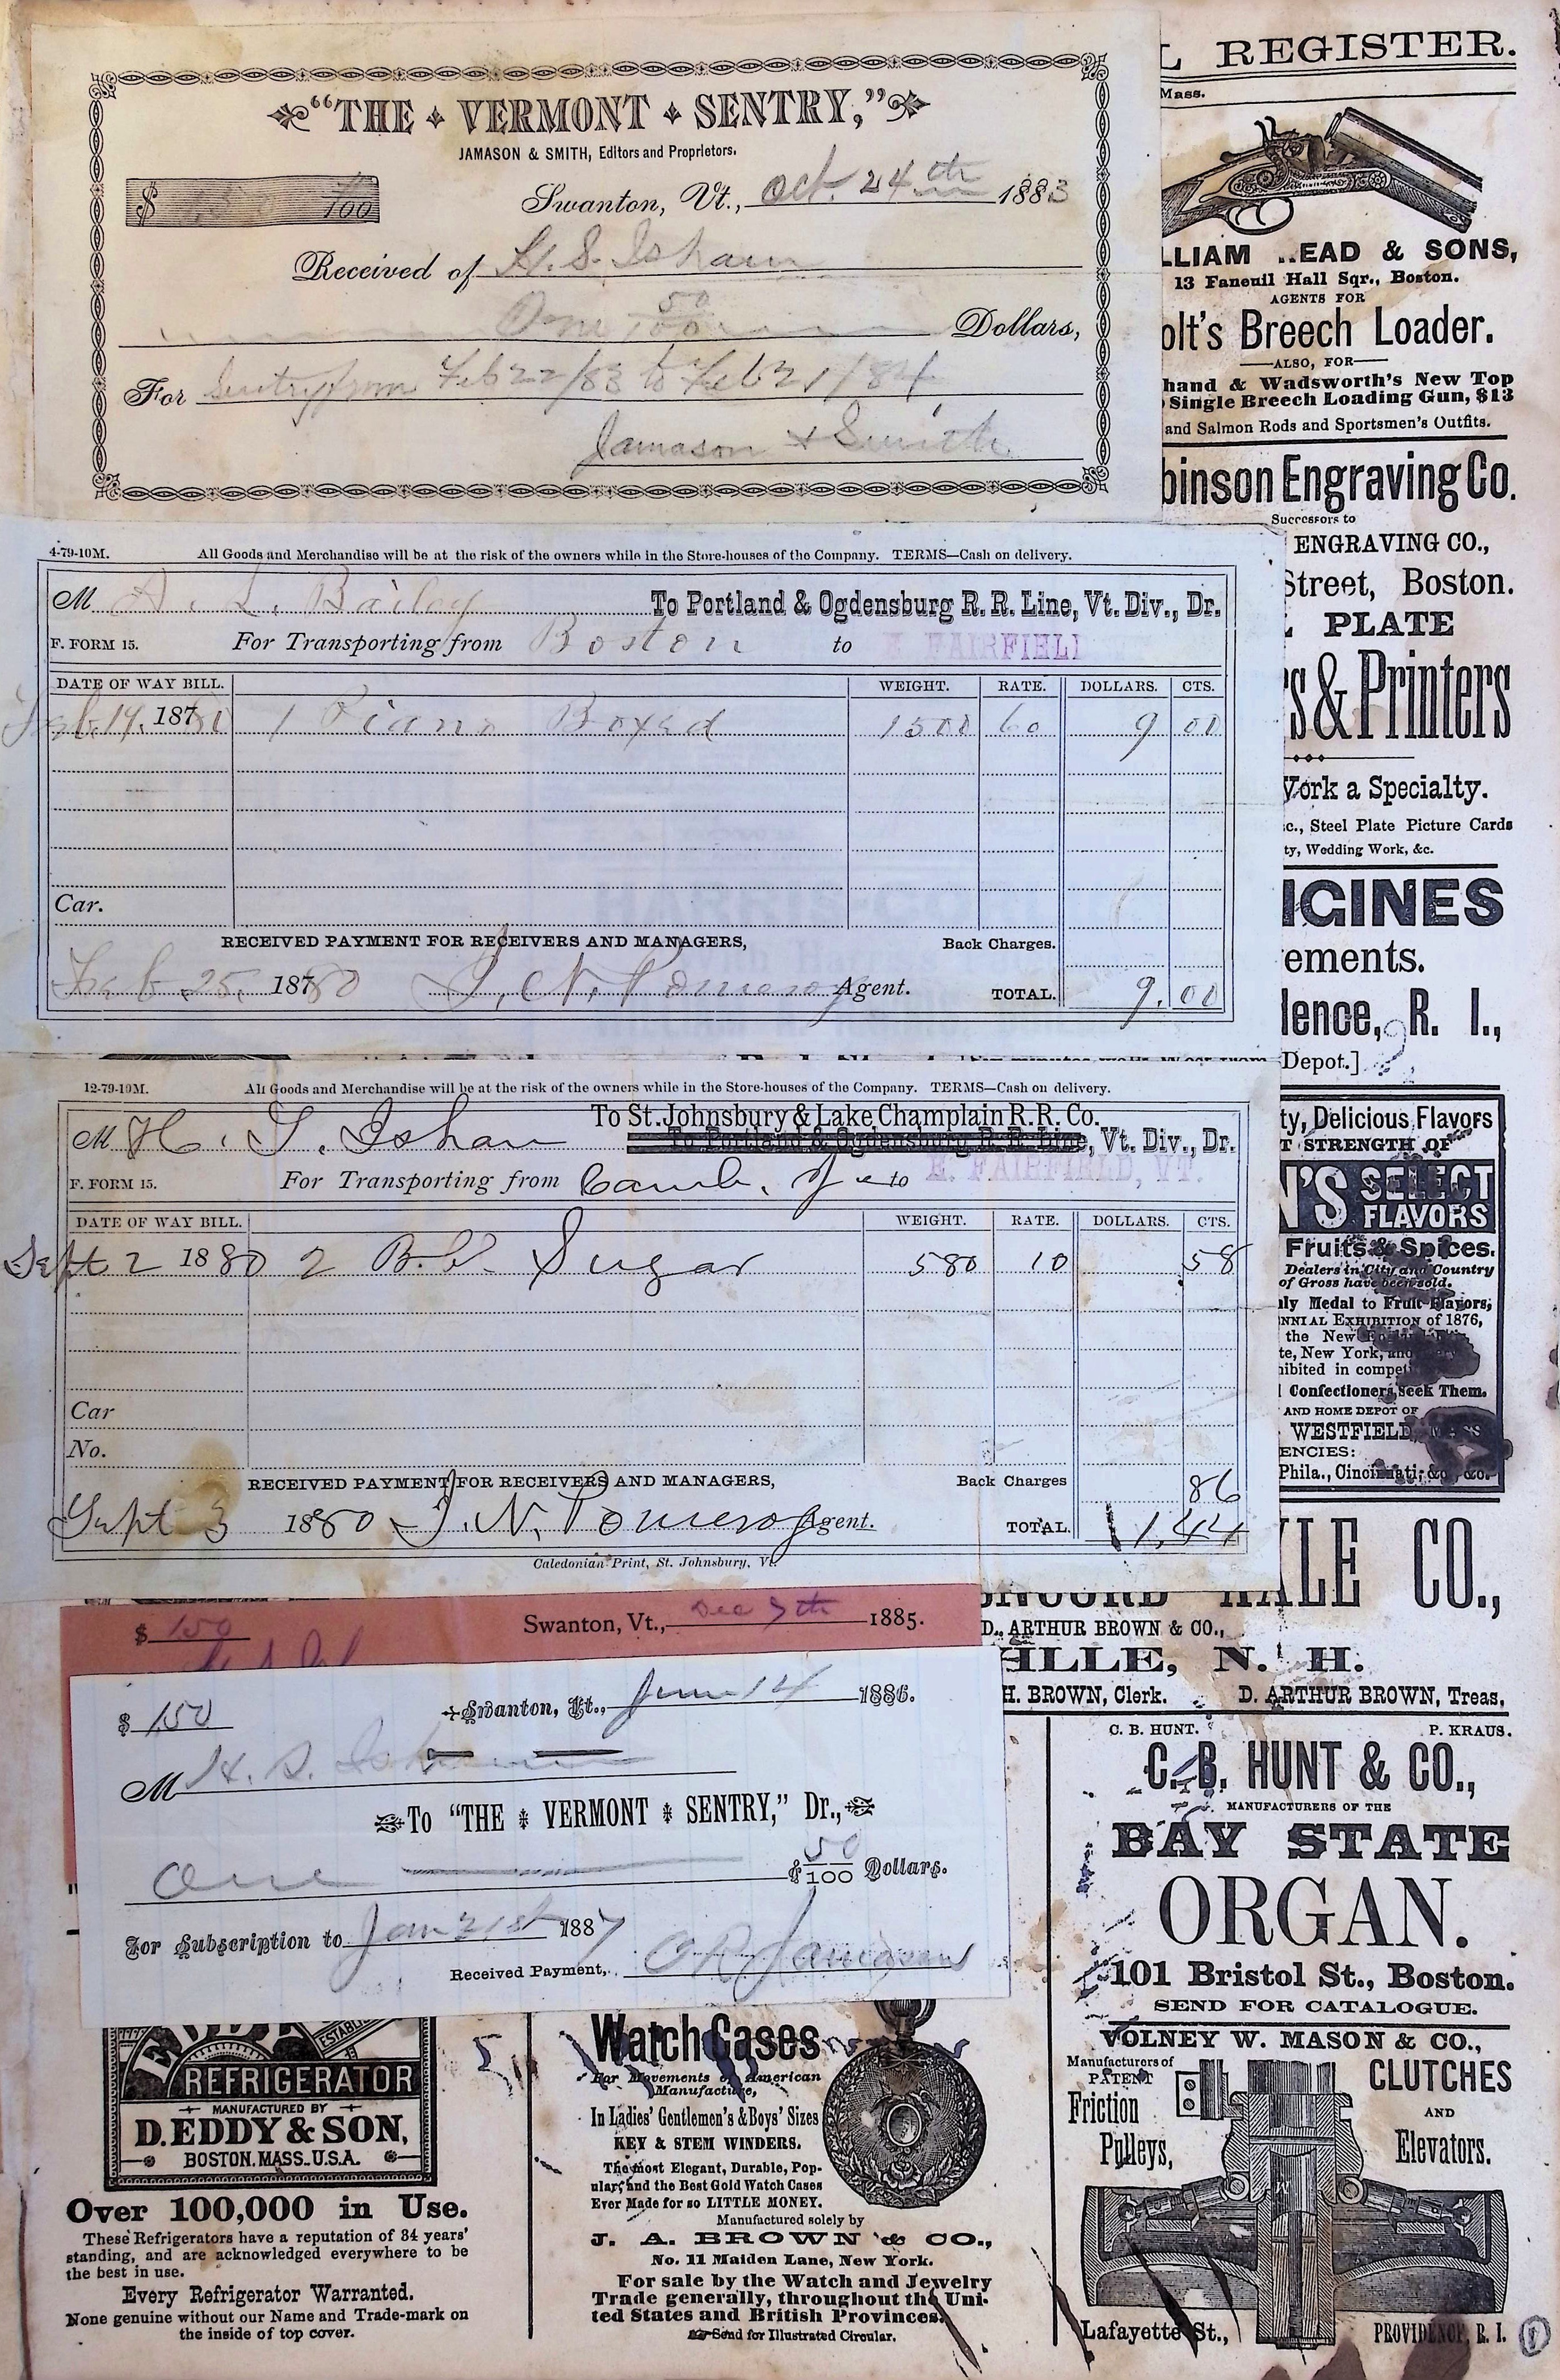 "THE VERMONT SENTRY,"
JAMASON & SMITH, Editors and Proprietors.
$ /100
Swanton, Vt., Oct. 24th 1883
Received of H. S. Isham
One 50/100 Dollars,
For Sentry from Feb 22/83 to Feb 21/84
Jamason & Smith
4-79-10M. All Goods and Merchandise will be at the risk of the owners while in the Store-houses of the Company. TERMS—Cash on delivery.
M A. L. Bailey To Portland & Ogdensburg R. R. Line, Vt. Div., Dr.
F. FORM 15. For Transporting from Boston to E. FAIRFIELD
DATE OF WAY BILL. WEIGHT. RATE. DOLLARS. CTS.
Feb. 19, 1 Piano Boxed 1500 60 9 00
Car.
RECEIVED PAYMENT FOR RECEIVERS AND MANAGERS, Back Charges.
Feb. 25, 1880 J. N. Pomeroy Agent. TOTAL. 9.00
12-79-10M. All Goods and Merchandise will be at the risk of the owners while in the Store-houses of the Company. TERMS—Cash on delivery.
To St. Johnsbury & Lake Champlain R. R. Co.
M H. S. Isham To Portland & Ogdensburg R. R. Line, Vt. Div., Dr.
F. FORM 15. For Transporting from Camb. Jc to E. FAIRFIELD, VT.
DATE OF WAY BILL. WEIGHT. RATE. DOLLARS. CTS.
Sept 2 1880 2 Sugar 580 10 58
Car
No.
RECEIVED PAYMENT FOR RECEIVERS AND MANAGERS, Back Charges 86
Sept 3 1880 J. N. Pomeroy Agent. TOTAL. 1.44
Caledonian Print, St. Johnsbury, Vt.
$ 150 Swanton, Vt., Dec 7th 1885.
$ 150 Swanton, Vt., June 14 1886.
M H. S. Isham
To "THE VERMONT SENTRY," Dr.,
One & 50/100 Dollars.
For Subscription to Jan 21st 1887
Received Payment, O R Jamason
L REGISTER.
Mass.
LLIAM READ & SONS,
13 Faneuil Hall Sqr., Boston.
AGENTS FOR
olt's Breech Loader.
ALSO, FOR
hand & Wadsworth's New Top
Single Breech Loading Gun, $13
and Salmon Rods and Sportsmen's Outfits.
binson Engraving Co.
Successors to
ENGRAVING CO.,
Street, Boston.
PLATE
s & Printers
York a Specialty.
c., Steel Plate Picture Cards
ty, Wedding Work, &c.
NGINES
ements.
dence, R. I.,
Depot.]
ty, Delicious Flavors
T STRENGTH OF
N'S SELECT
FLAVORS
Fruits & Spices.
Dealers in City and Country
of Gross have been sold.
nly Medal to Fruit Flavors,
NNIAL EXHIBITION of 1876,
the New
te, New York, and
hibited in compet
Confectioners Seek Them.
AND HOME DEPOT OF
WESTFIELD, MASS
ENCIES:
Phila., Cincinnati, &c., &c.
ALE CO.,
D. ARTHUR BROWN & CO.,
ILLE, N. H.
H. BROWN, Clerk. D. ARTHUR BROWN, Treas.
C. B. HUNT. P. KRAUS.
C. B. HUNT & CO.,
MANUFACTURERS OF THE
BAY STATE
ORGAN.
101 Bristol St., Boston.
SEND FOR CATALOGUE.
VOLNEY W. MASON & CO.,
Manufacturers of
PATENT
Friction
Pulleys,
CLUTCHES
AND
Elevators.
Lafayette St., PROVIDENCE, R. I.
REFRIGERATOR
MANUFACTURED BY
D. EDDY & SON,
BOSTON, MASS. U.S.A.
Over 100,000 in Use.
These Refrigerators have a reputation of 34 years'
standing, and are acknowledged everywhere to be
the best in use.
Every Refrigerator Warranted.
None genuine without our Name and Trade-mark on
the inside of top cover.
Watch Cases
For Movements of American
Manufacture,
In Ladies' Gentlemen's & Boys' Sizes
KEY & STEM WINDERS.
The most Elegant, Durable, Pop-
ular, and the Best Gold Watch Cases
Ever Made for so LITTLE MONEY.
Manufactured solely by
J. A. BROWN & CO.,
No. 11 Maiden Lane, New York.
For sale by the Watch and Jewelry
Trade generally, throughout the Uni-
ted States and British Provinces.
Send for Illustrated Circular.